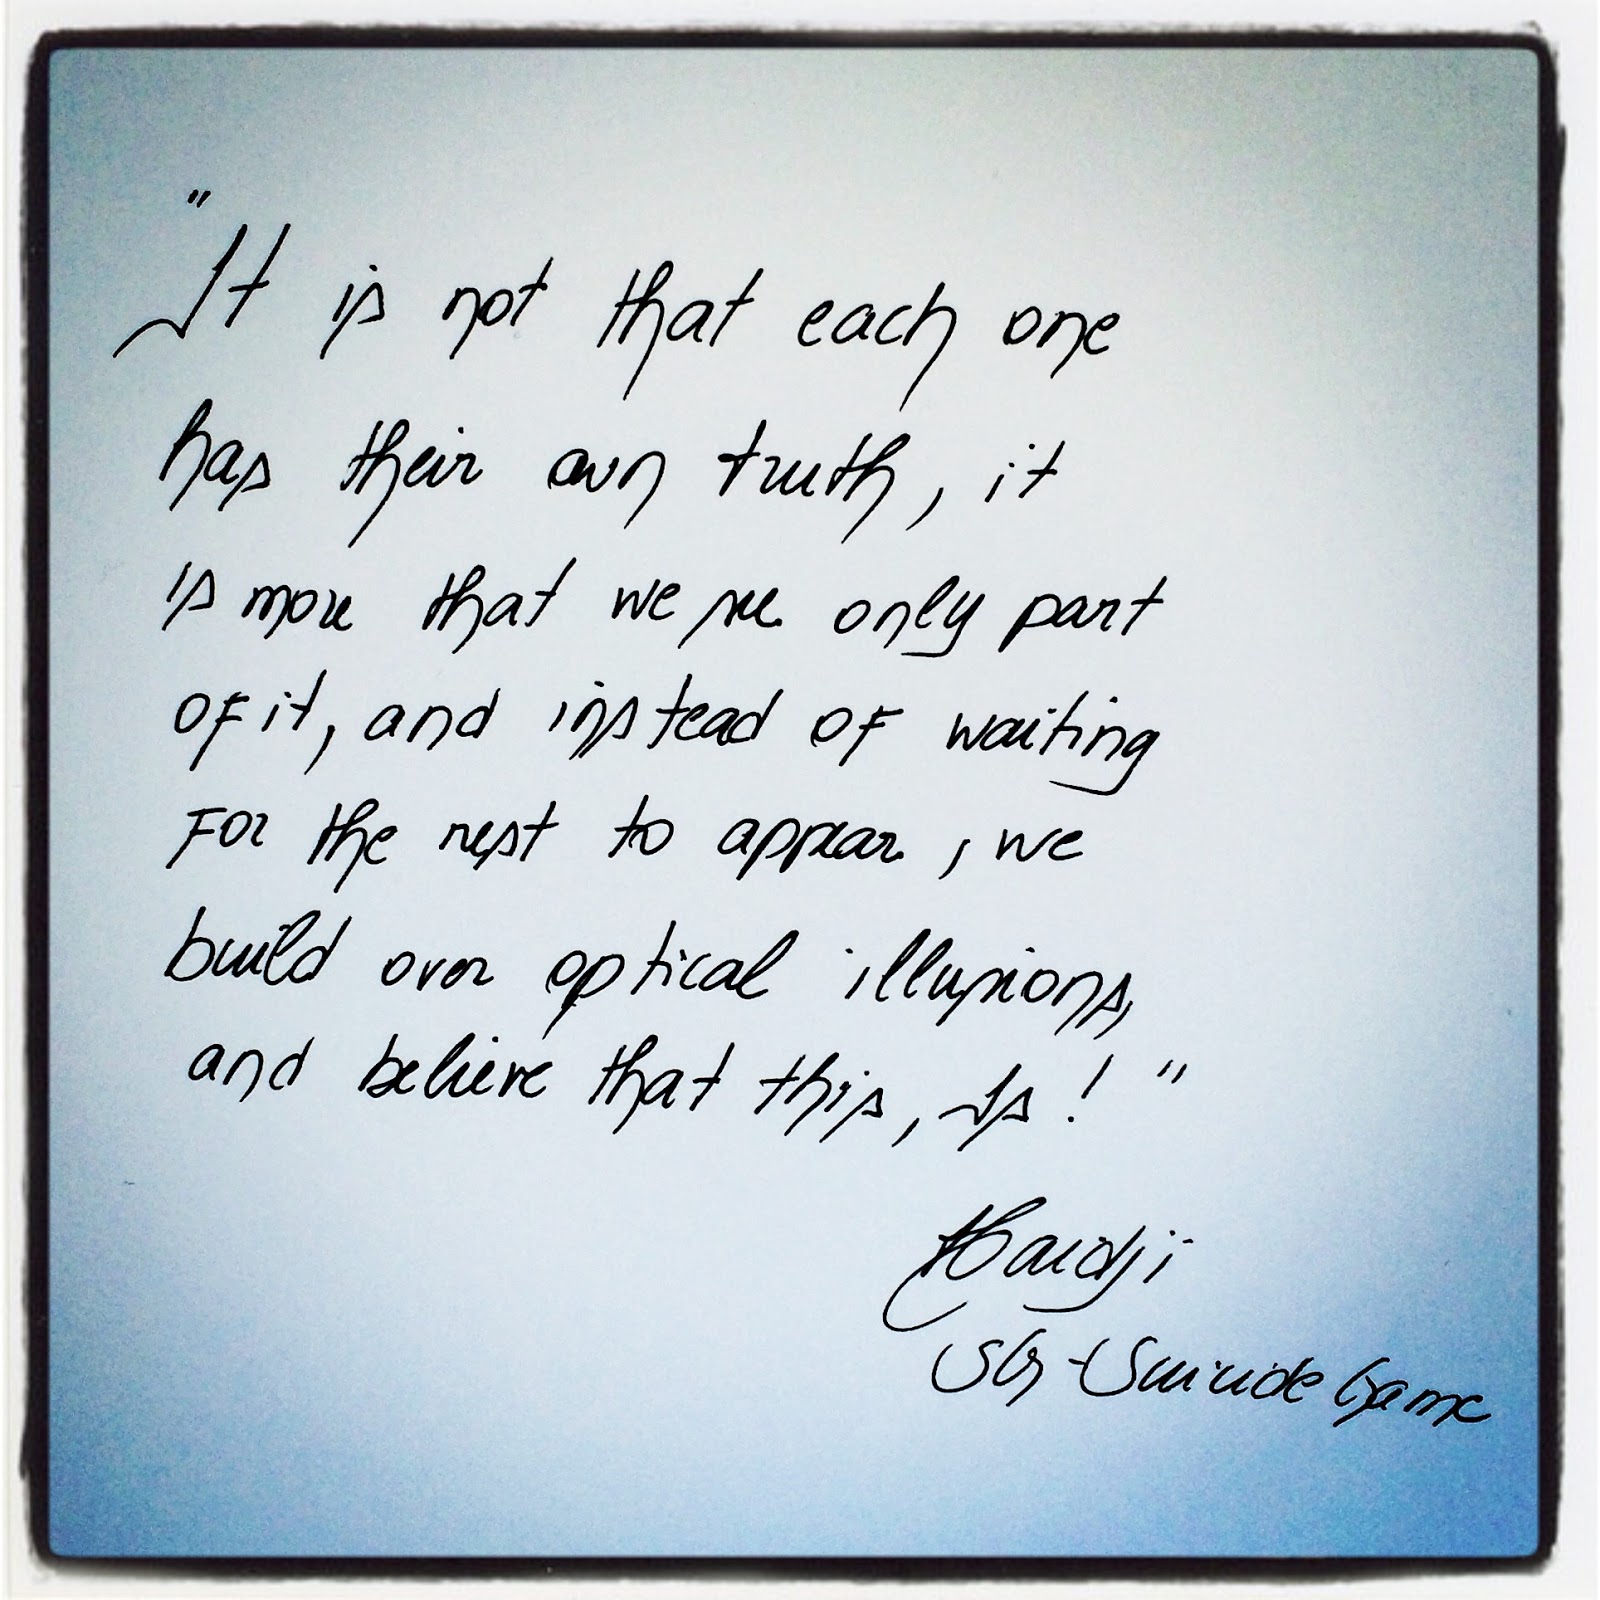 "It is not that each one
has their own truth, it
is more that we see only part
of it, and instead of waiting
for the rest to appear, we
build over optical illusions,
and believe that this, Is!"
SG - Suicide Game